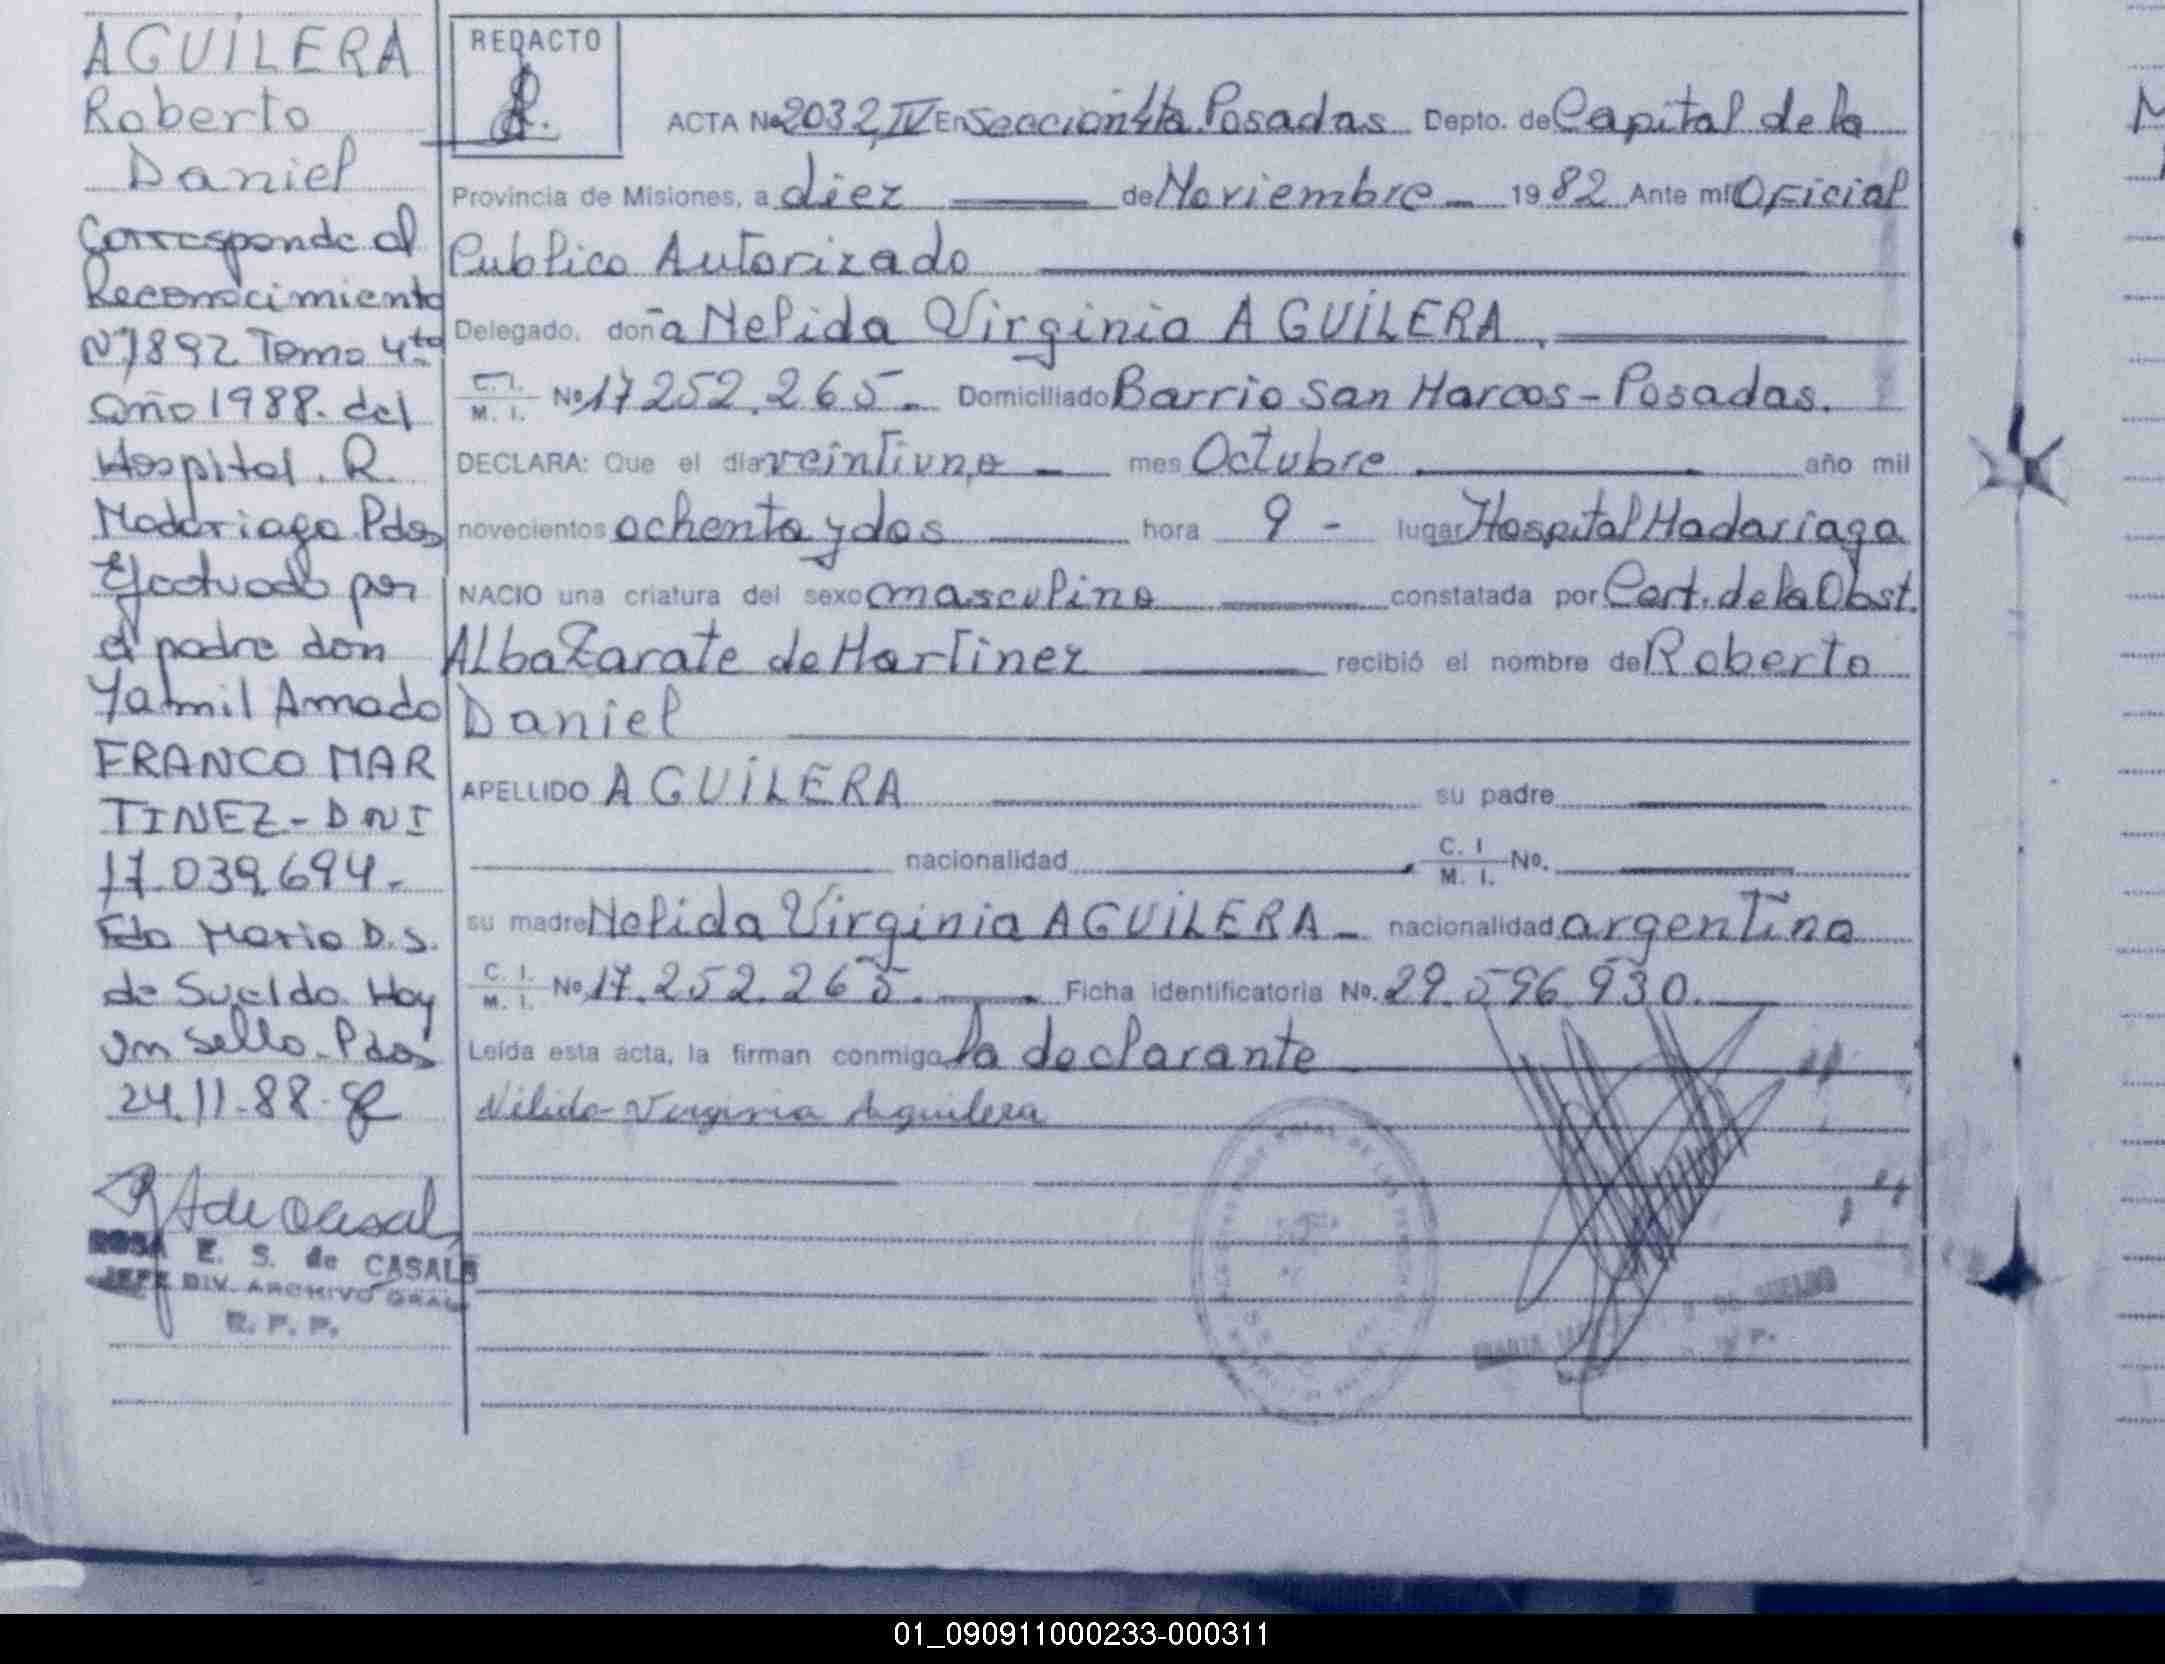 AGUILERA
Roberto
Daniel
Corresponde al
Reconocimiento
Nº1892 Tomo 4to
año 1988. del
Hospital. R.
Madariaga. Pdas
Efectuado por
el padre don
Yamil Amado
FRANCO MAR
TINEZ - DNI
17.039.694.-
Fdo Maria D. S.
de Sueldo. Hay
un sello. Pdas
24.11.88.
ROSA E. S. de CASALS
JEFE DIV. ARCHIVO GRAL.
R. P. P.
REDACTO
ACTA No 2032, IV En Sección 4ta. Posadas Depto. de Capital de la
Provincia de Misiones, a diez de Noviembre 1982 Ante mí Oficial
Publico Autorizado
Delegado, doña Nelida Virginia AGUILERA,
C. I. / M. I. No 17252.265. Domiciliado Barrio San Marcos - Posadas.
DECLARA: Que el día veintiuno mes Octubre año mil
novecientos ochenta y dos hora 9 - lugar Hospital Madariaga
NACIO una criatura del sexo masculino constatada por Cert. de la Obst.
Alba Zarate de Martinez recibió el nombre de Roberto
Daniel
APELLIDO AGUILERA su padre
nacionalidad C. I / M. I. No.
su madre Nelida Virginia AGUILERA nacionalidad argentina
C. I. / M. I. No 17.252.265. Ficha identificatoria No. 29.596.930.
Leída esta acta, la firman conmigo la declarante
Nélida Virginia Aguilera
01_090911000233-000311